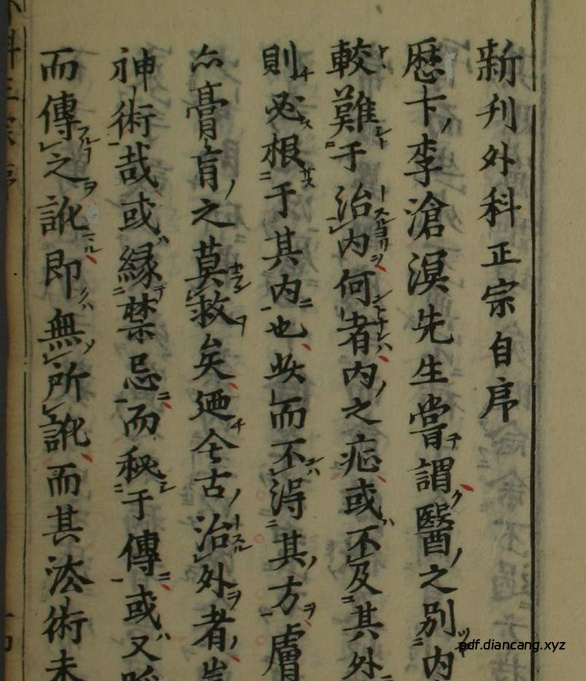 新刊外科正宗自序
歴下李滄溟先生嘗謂醫之別內
較難于治內何者內之症或不及其外
則必根于其內也此而不得其方膚
亦膏肓之莫救矣廼今古治外者豈
神術哉或緣禁忌而秘于傳或又
而傳之訛即無所訛而其法術未
pdf.diancang.xyz